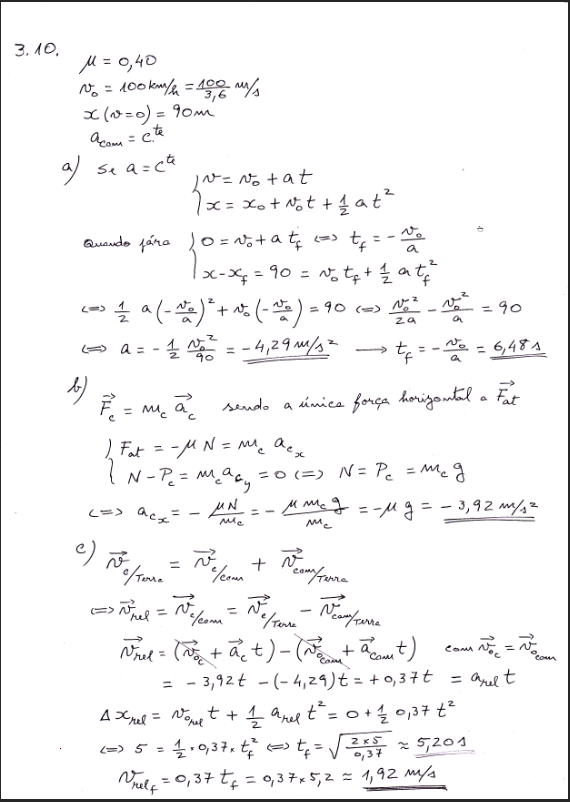 3.10.
μ = 0,40
v₀ = 100 km/h = 100/3,6 m/s
x (v=0) = 90m
a_cam = c.te
a) Se a = cte
{ v = v₀ + at
x = x₀ + v₀t + 1/2 at²
Quando pára { 0 = v₀ + a t_f <=> t_f = - v₀/a
x - x_f = 90 = v₀ t_f + 1/2 a t_f²
<=> 1/2 a (-v₀/a)² + v₀ (-v₀/a) = 90 <=> v₀²/2a - v₀²/a = 90
<=> a = - 1/2 v₀²/90 = -4,29 m/s² → t_f = - v₀/a = 6,48 s
b) F⃗_c = m_c a⃗_c sendo a única força horizontal a F⃗at
{ Fat = -μ N = m_c a_cx
N - P_c = m_c a_cy = 0 <=> N = P_c = m_c g
<=> a_cx = - μN/m_c = - μ m_c g/m_c = -μ g = - 3,92 m/s²
c) v⃗_c/Terra = v⃗_c/cam + v⃗_cam/Terra
<=> v⃗_rel = v⃗_c/cam = v⃗_c/Terra - v⃗_cam/Terra
v⃗_rel = (v⃗₀c + a⃗_c t) - (v⃗₀cam + a⃗_cam t) com v⃗₀c = v⃗₀cam
= - 3,92t - (-4,29)t = +0,37t = a_rel t
Δx_rel = v₀rel t + 1/2 a_rel t² = 0 + 1/2 0,37 t²
<=> 5 = 1/2 × 0,37 × t_f² <=> t_f = √(2×5/0,37) ≈ 5,20 s
v_rel f = 0,37 t_f = 0,37 × 5,2 ≈ 1,92 m/s